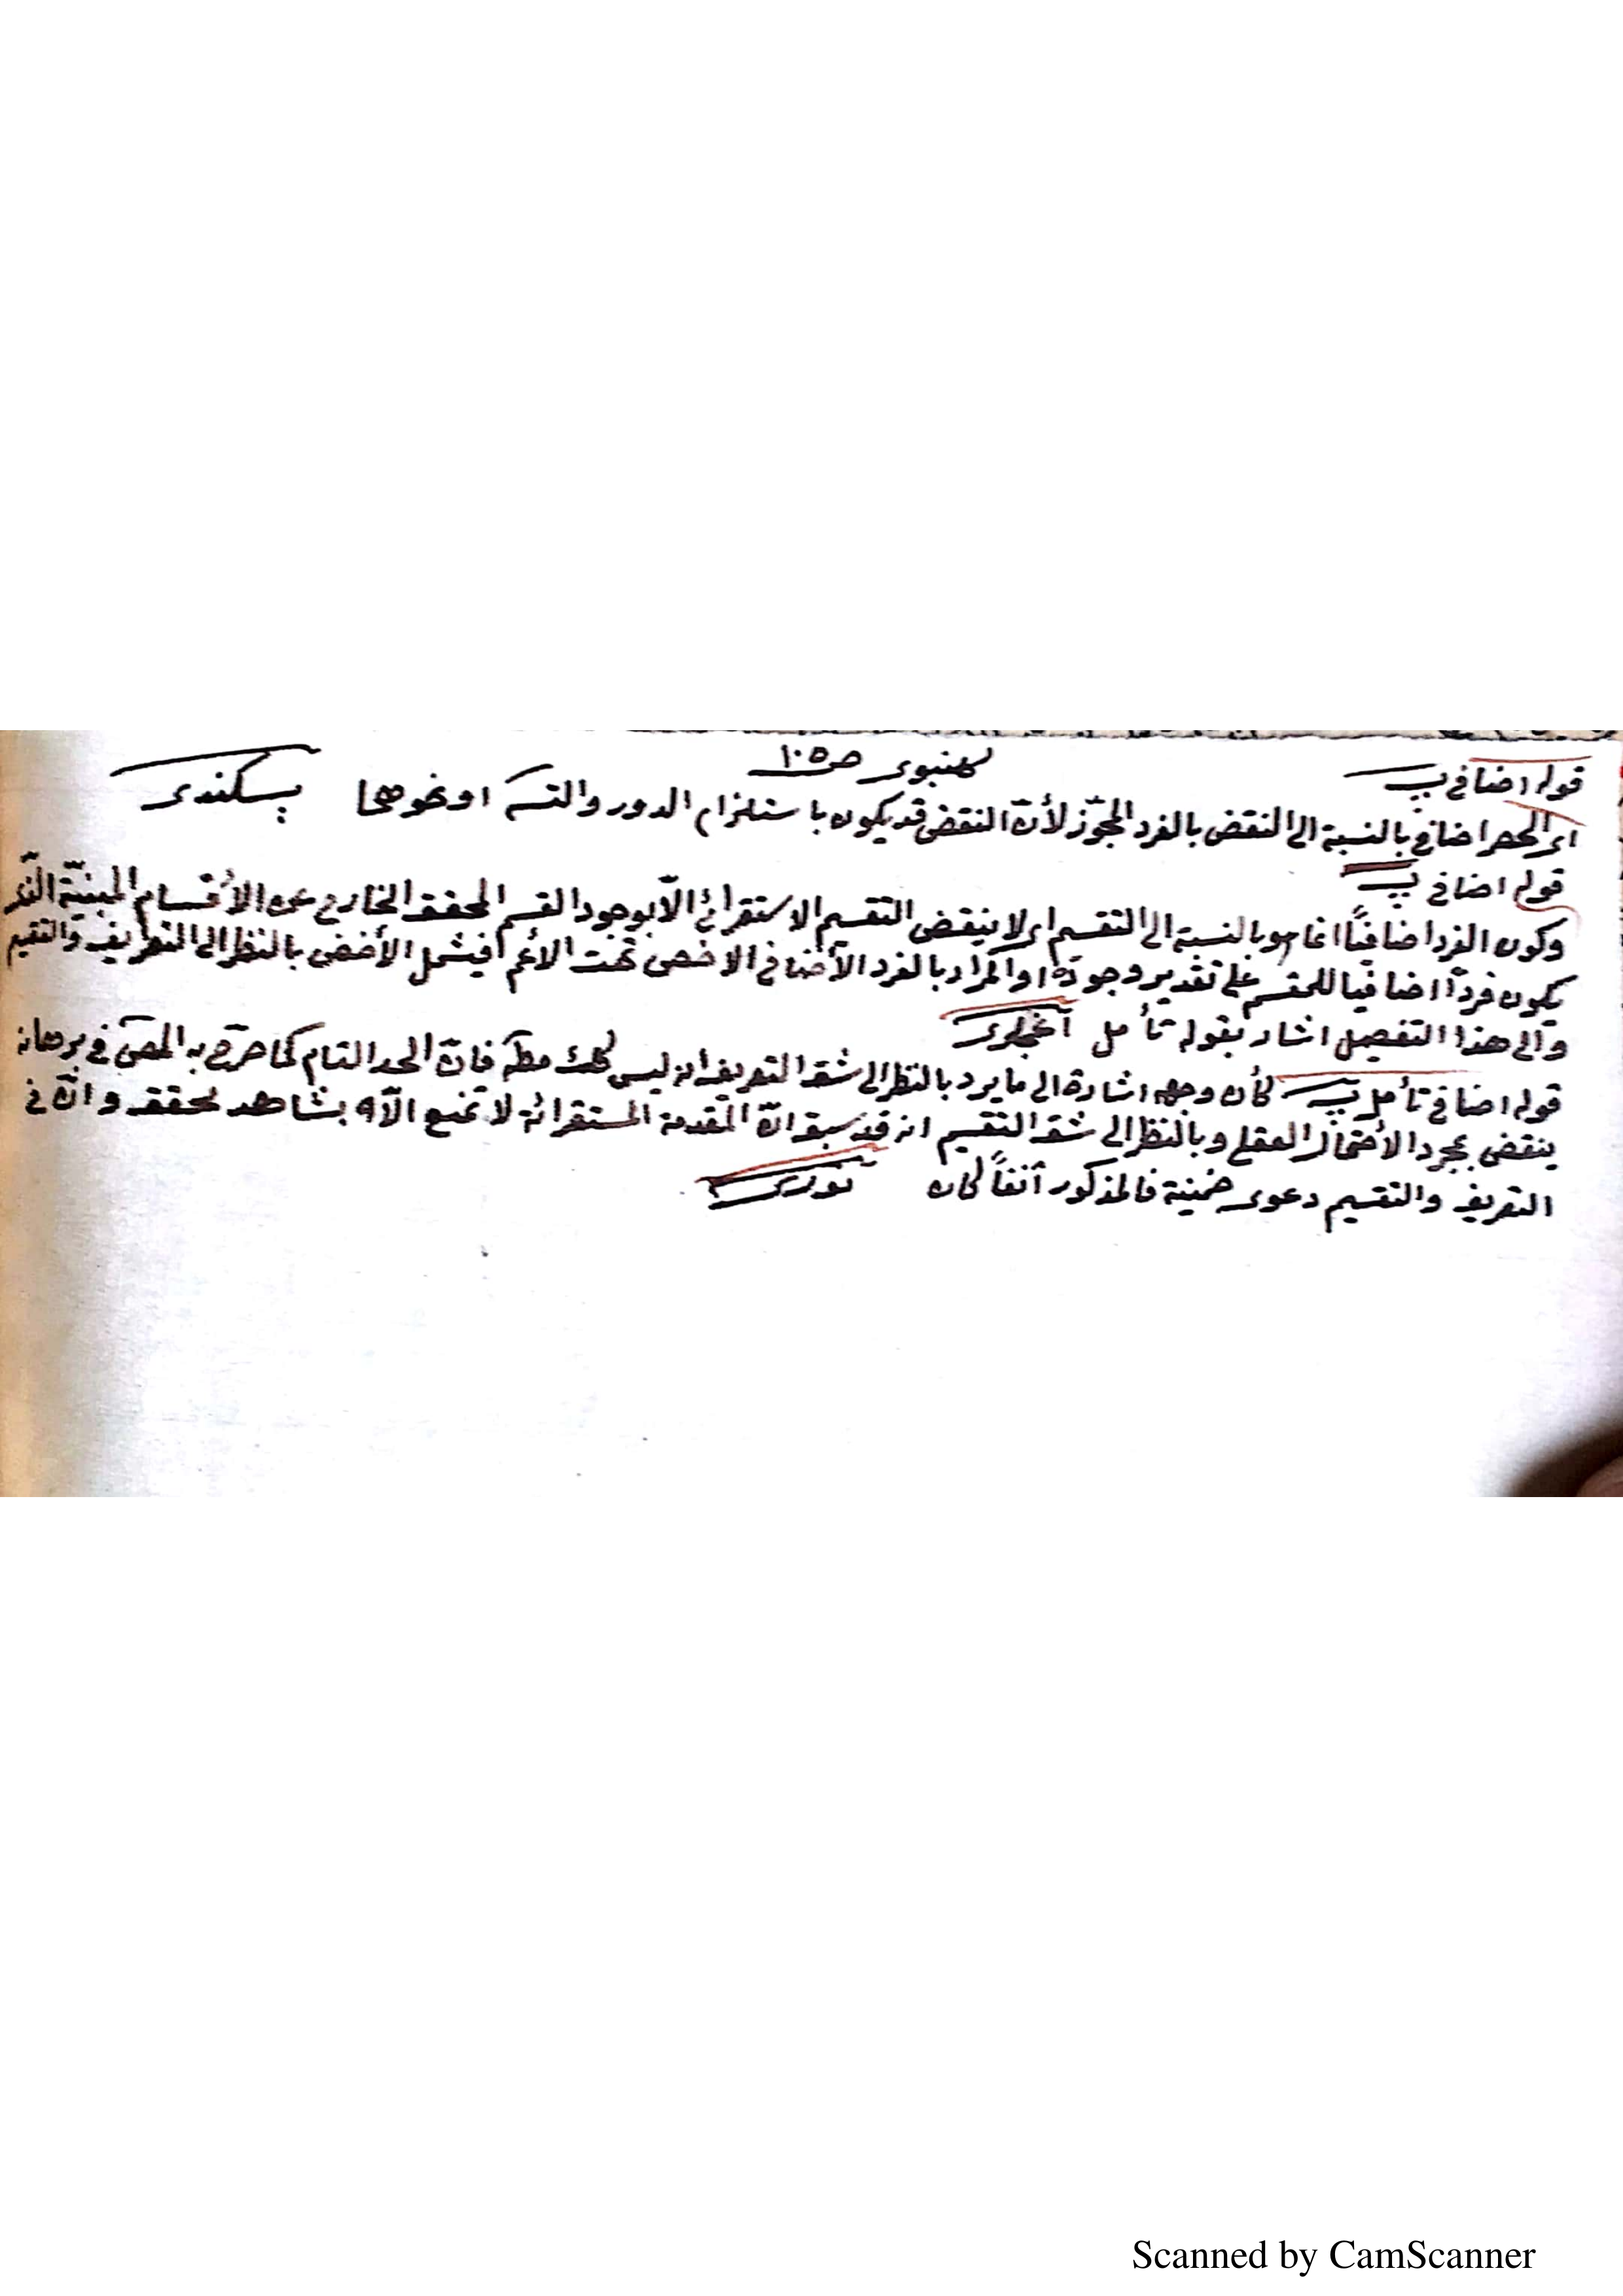 كلنبوى ص ١٠٥
قوله اضافي
اى الحصر اضافي بالنسبة الى النقض بالفرد المجوّز لأنّ النقض قد يكون باستلزام الدور والتسـ او نحوهما
قوله اضافي
وكون الفرد اضافيّاً انما هو بالنسبة الى التقسيم اى لا ينتقض التقسيم الاستقرائي الّا بوجود القسم المحقق الخارج عن الأقسام المبنيّة
يكون فرداً اضافيا للمقسم على تقدير وجوده او المراد بالفرد الأضافي الاخص تحت الاعم فيشمل بالنظر الى التعريف والتقسيم
والى هذا التفصيل اشار بقوله تأمل
قوله اضافي تأمل كأن وجهه اشارة الى ما يرد بالنظر الى شق التعريف انه ليس كذلك مطـ فانّ الحد التام كما صرّح به المصـ في برهانه
ينتقض بمجرد الأحتمال العقلي وبالنظر الى شق التقسيم انه قد سبق انّ المقدمة المستقرائة لا تمنع الّا بشاهد محقق وانّ في
التعريف والتقسيم دعوى ضمنية فالمذكور آنفاً كان
Scanned by CamScanner